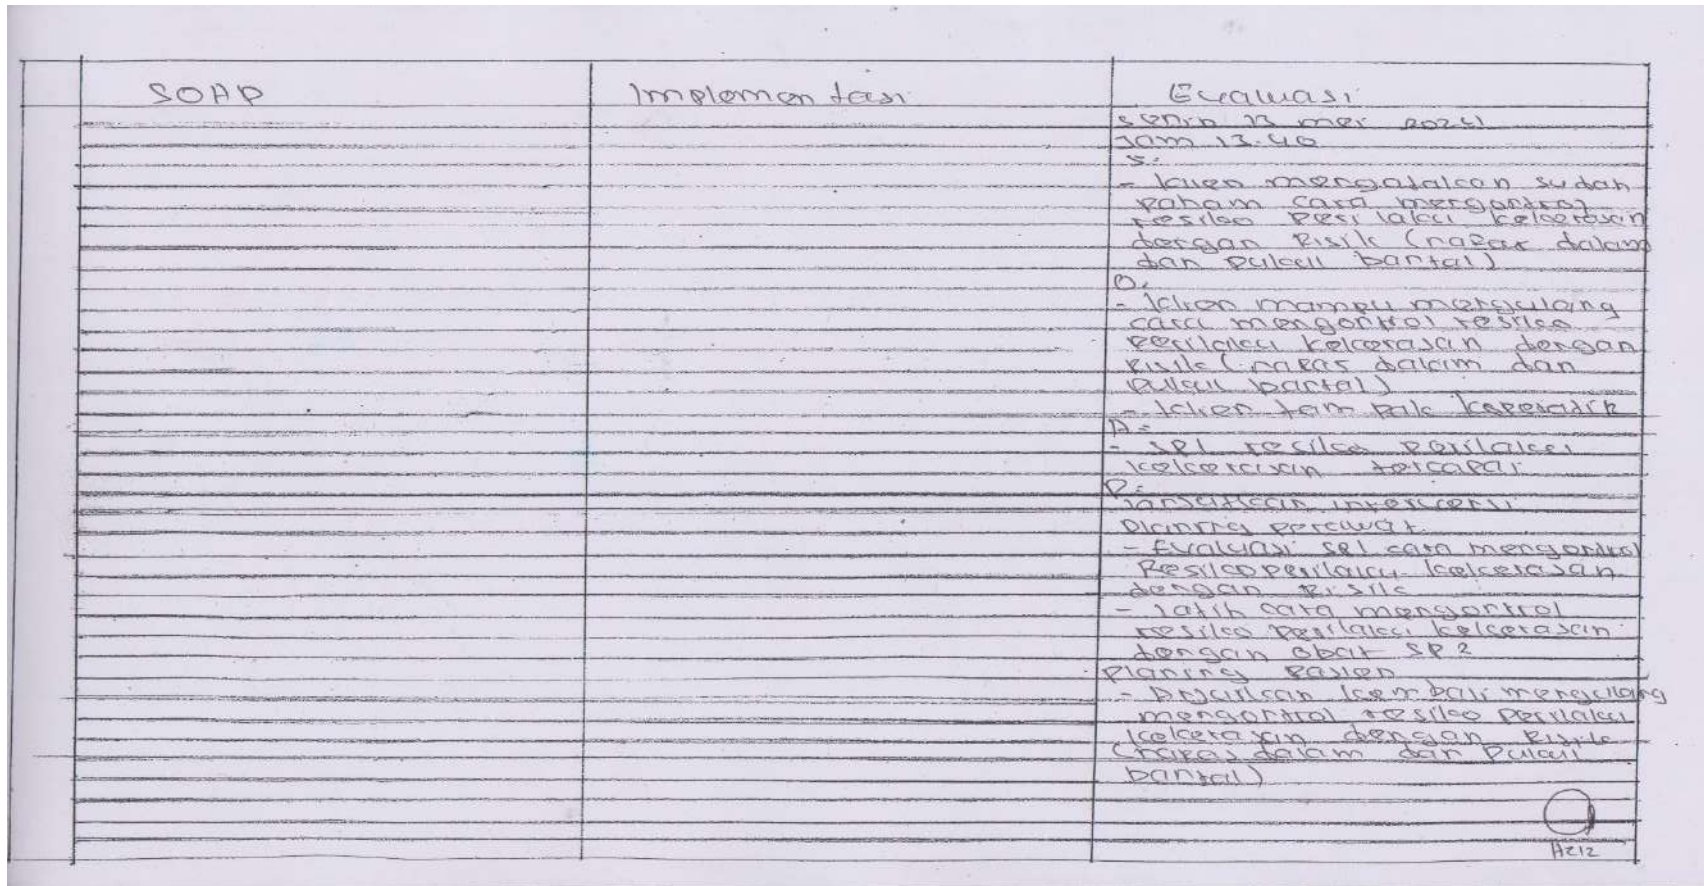 SOAP
Implementasi
Evaluasi
Senin 13 mei 2024
Jam 13.40
S:
- Klien mengatakan sudah
paham cara mengontrol
resiko perilaku kekerasan
dengan Fisik (nafas dalam
dan pukul bantal)
O:
- Klien mampu mengulang
cara mengontrol resiko
perilaku kekerasan dengan
Fisik (nafas dalam dan
pukul bantal)
- Klien tam pak koperatif
A:
- SP1 resiko perilaku
kekerasan tercapai
P:
lanjutkan intervensi
Planing perawat
- Evaluasi SP1 cara mengontrol
Resiko perilaku kekerasan
dengan Fisik
- latih cara mengontrol
resiko perilaku kekerasan
dengan obat SP2
Planing Pasien
- Anjurkan kembali mengulang
mengontrol resiko perilaku
kekerasan dengan Fisik
(nafas dalam dan Pukul
bantal)
Aziz